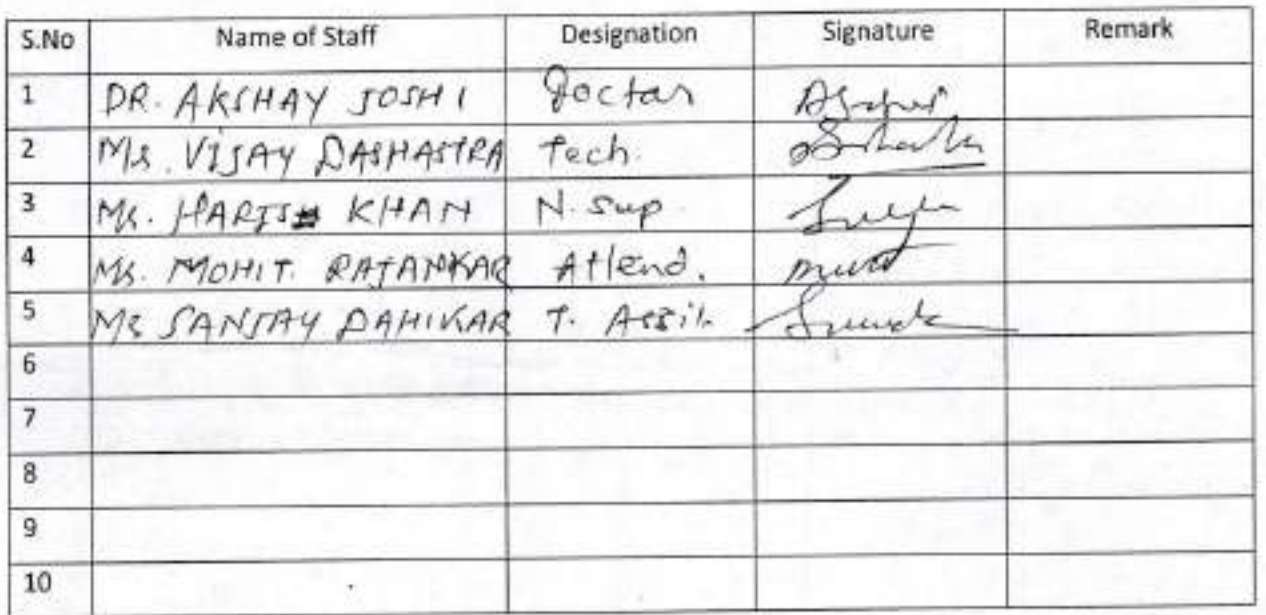 S.No Name of Staff Designation Signature Remark
1 DR. AKSHAY JOSHI Doctar
2 Mr. VIJAY DASHASTRA Tech.
3 Mr. HARIS KHAN N. Sup.
4 Mr. MOHIT. RAJANKAR Attend.
5 Mr SANJAY DAHIKAR T. Assit.
6
7
8
9
10